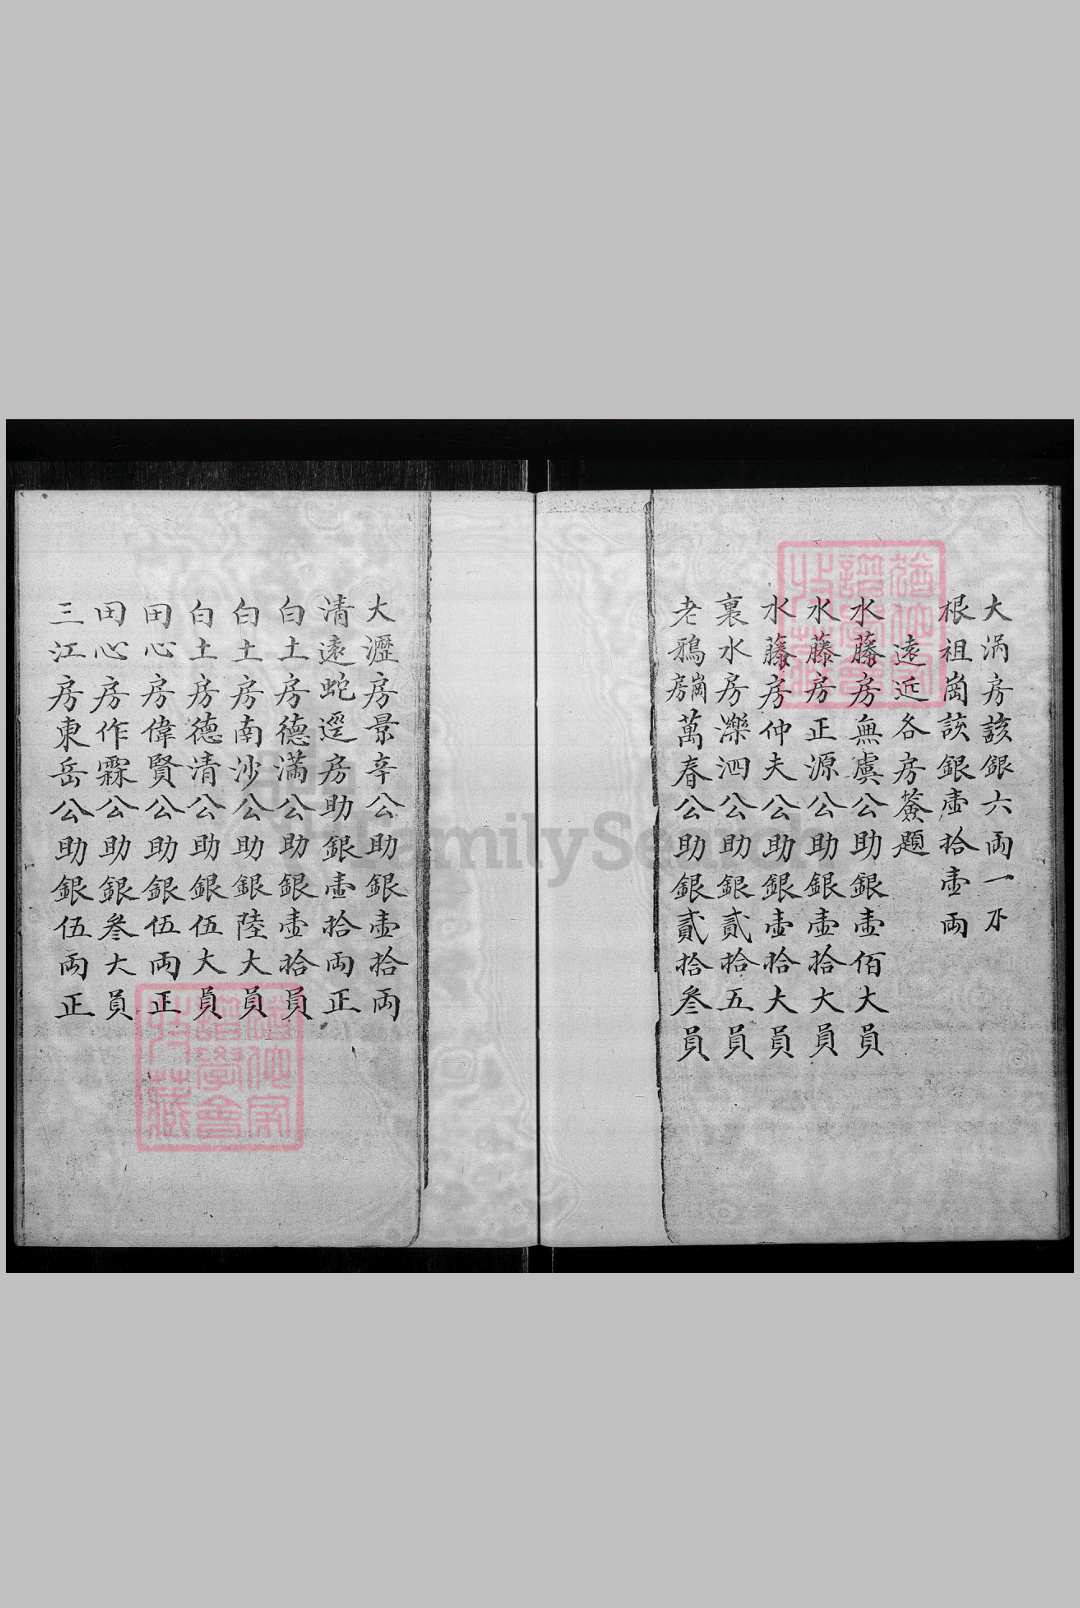 大涡房該銀六両一
根祖崗該銀壷拾壷両
遠近各房簽題
水藤房無虞公助銀壷佰大員
水藤房正源公助銀壷拾大員
水藤房仲夫公助銀壷拾大員
裏水房濼泗公助銀貳拾五員
老鴉崗房萬春公助銀貳拾叄員
大瀝房景辛公助銀壷拾両
清遠蛇逕房助銀壷拾両正
白土房德滿公助銀壷拾員
白土房南沙公助銀陸大員
白土房德清公助銀伍大員
田心房偉賢公助銀伍両正
田心房作霖公助銀叄大員
三江房東岳公助銀伍両正
FamilySearch